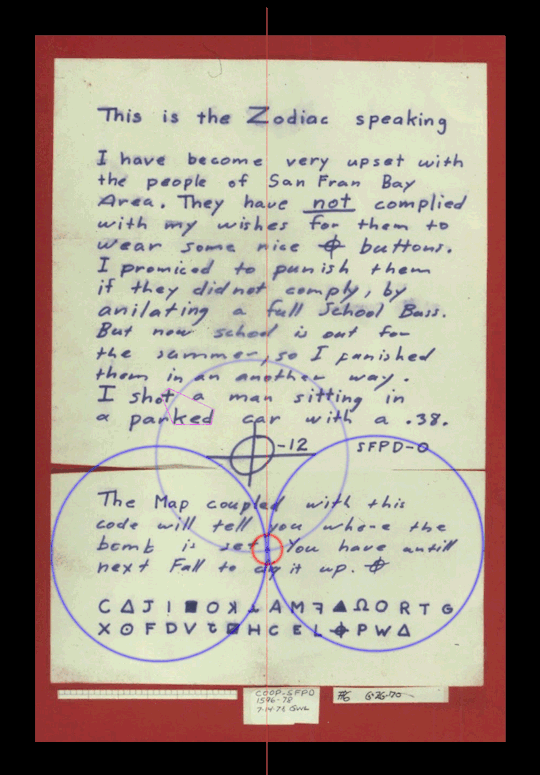 This is the Zodiac speaking
I have become very upset with
the people of San Fran Bay
Area. They have not complied
with my wishes for them to
wear some nice ⌖ buttons.
I promiced to punish them
if they did not comply, by
anilating a full School Buss.
But now school is out for
the summer, so I punished
them in an another way.
I shot a man sitting in
a parked car with a .38.
⌖-12 SFPD-0
The Map coupled with this
code will tell you where the
bomb is set. You have untill
next Fall to dig it up. ⌖
C Δ J I ■ O A M ▲ Ω O R T G
X ⊙ F D V H C E L ⌖ P W Δ
COOP-SFPD
1596-78
7-14-78